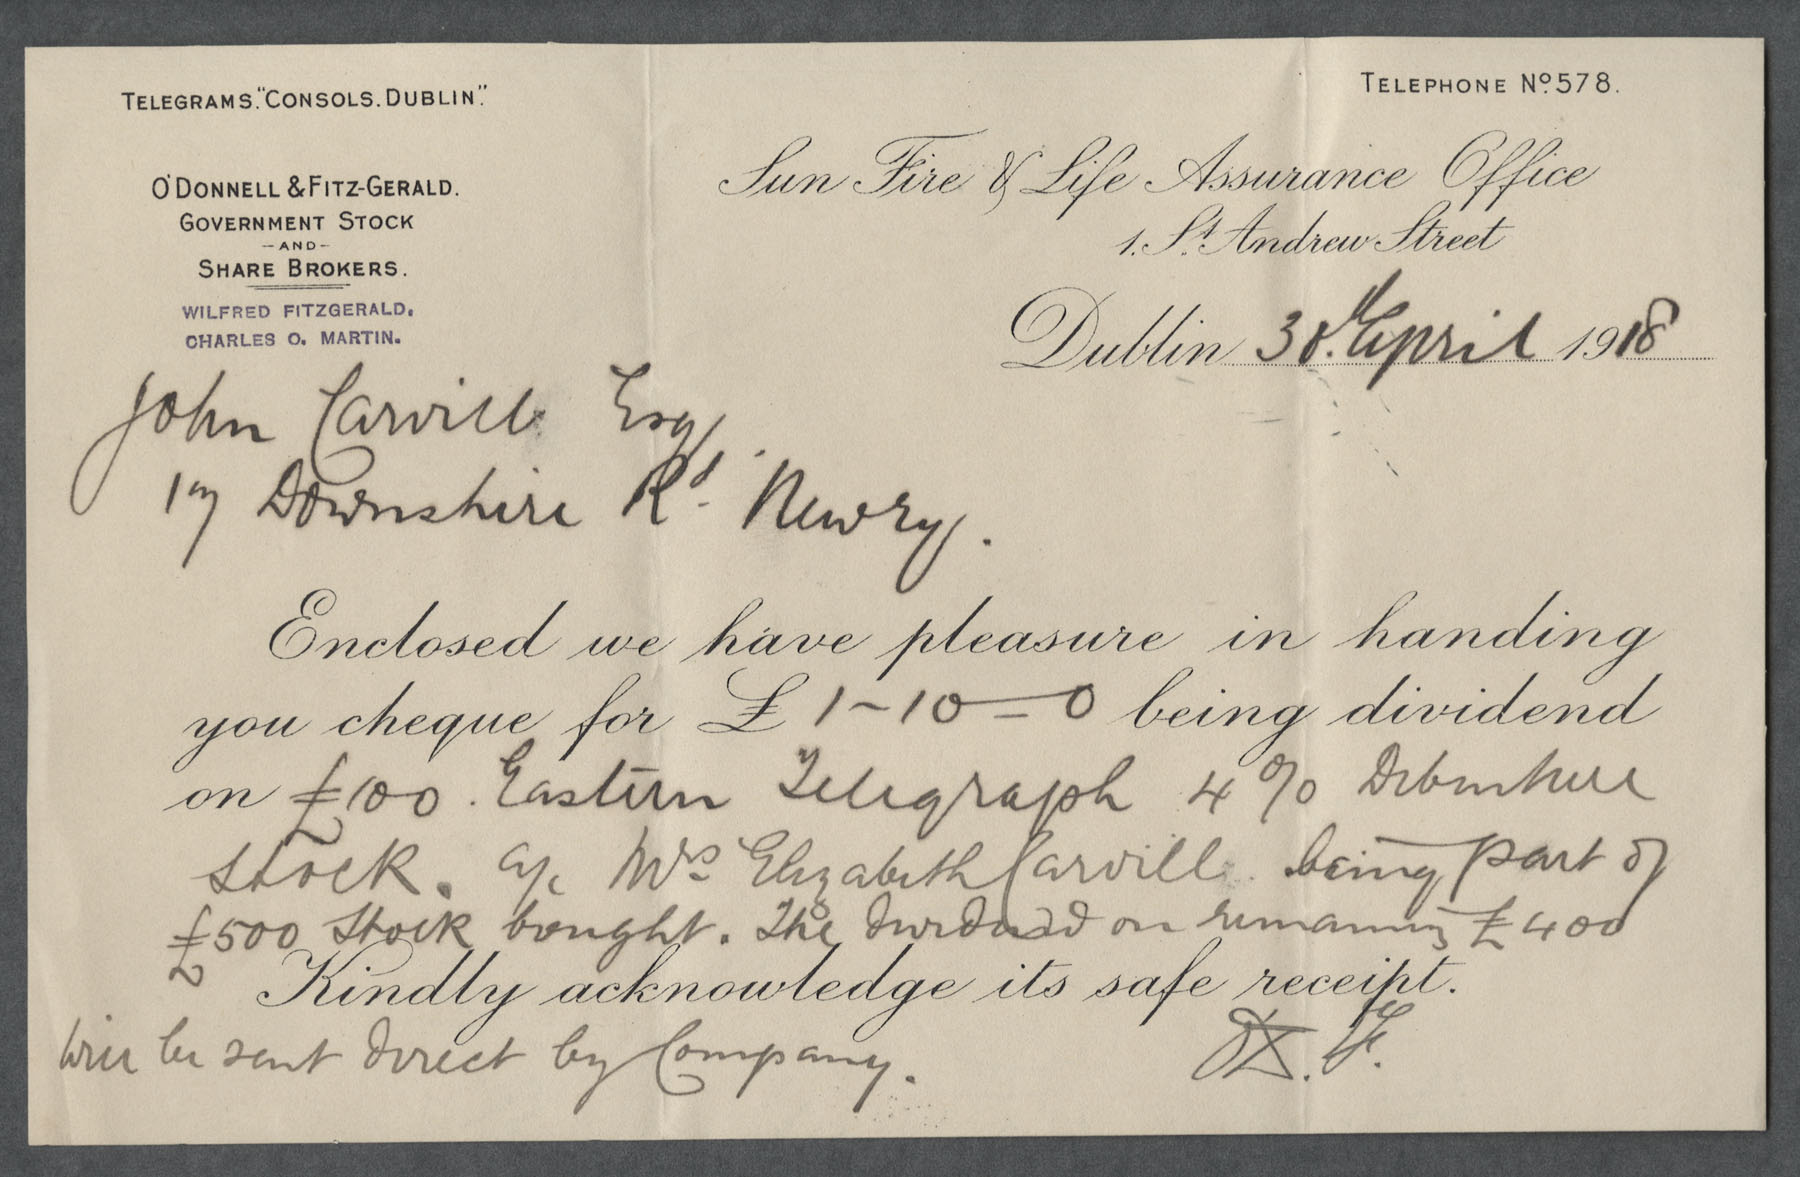 TELEGRAMS. "CONSOLS. DUBLIN".
TELEPHONE No. 578.
O'DONNELL & FITZ-GERALD.
GOVERNMENT STOCK
-AND-
SHARE BROKERS.
WILFRED FITZGERALD.
CHARLES O. MARTIN.
Sun Fire & Life Assurance Office
1. St. Andrew Street
Dublin 30th April 1918
John Carvill Esq.
17 Downshire Rd. Newry.
Enclosed we have pleasure in handing
you cheque for £ 1-10-0 being dividend
on £100. Eastern Telegraph 4% Debenture
Stock. a/c Mrs Elizabeth Carvill being part of
£500 Stock bought. The dividend on remaining £400
Kindly acknowledge its safe receipt.
will be sent direct by Company.